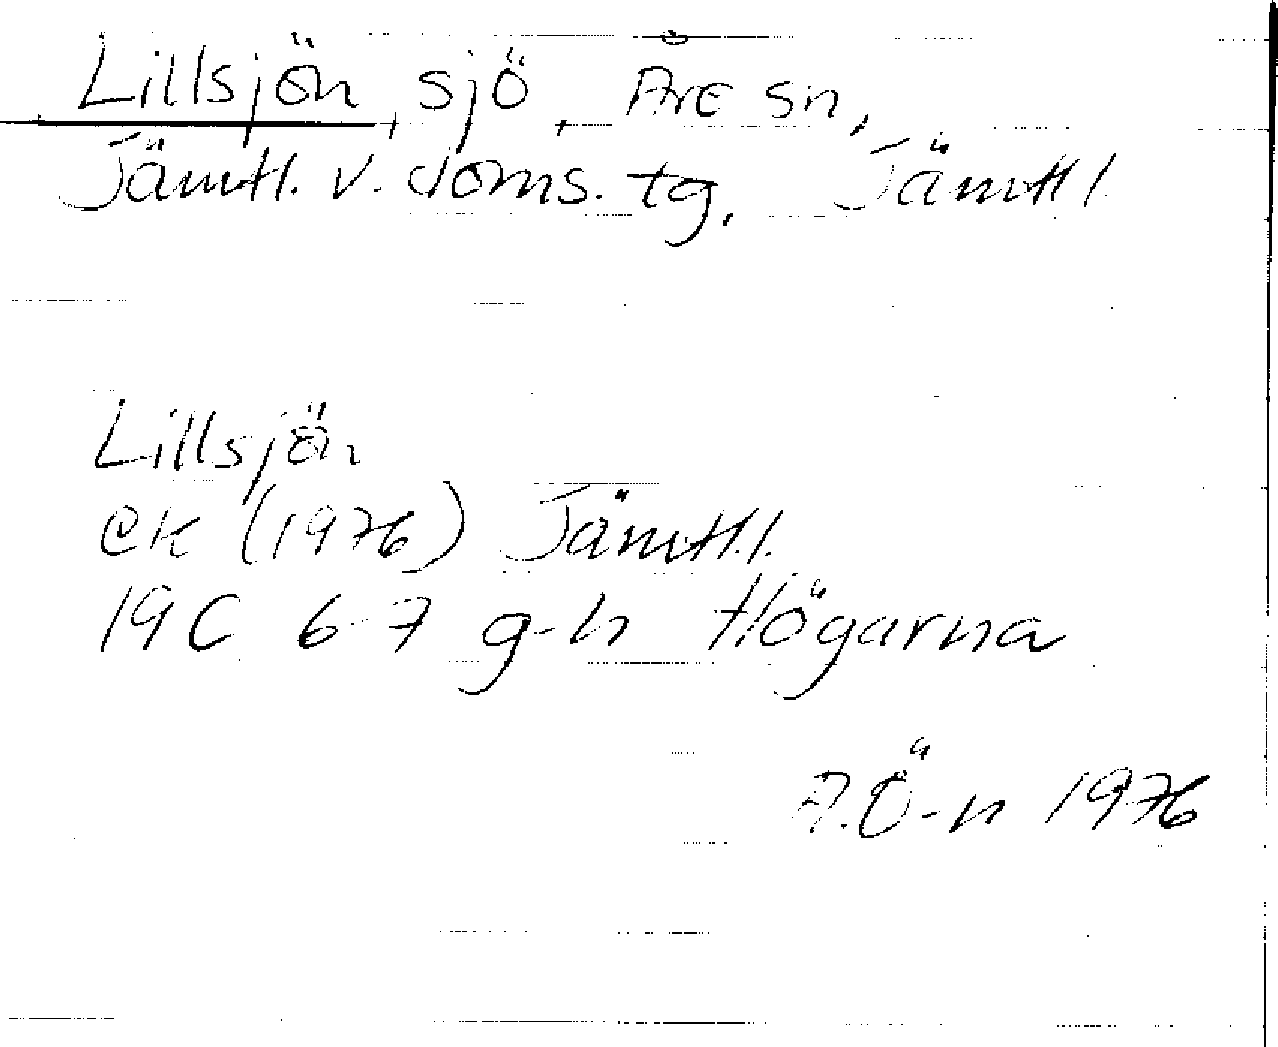 Lillsjön, sjö, Åre sn,
Jämtl. v. doms. tg, Jämtl
Lillsjön
ek (1976) Jämtl.l.
19C 6-7 g-h Högarna
A.Ö-n 1976